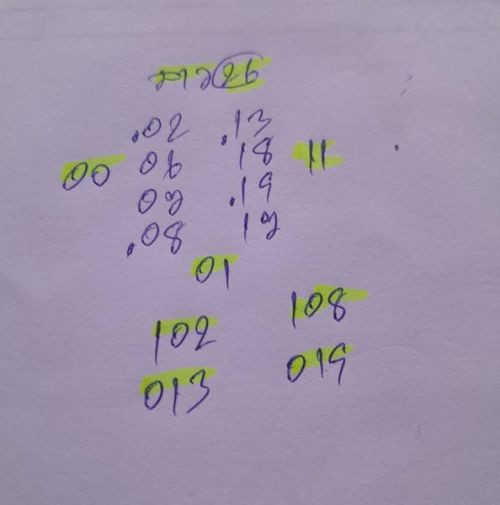 ลาว 26
.02 .13
00 06 18 11
07 .19
.08 17
01
102 108
013 019